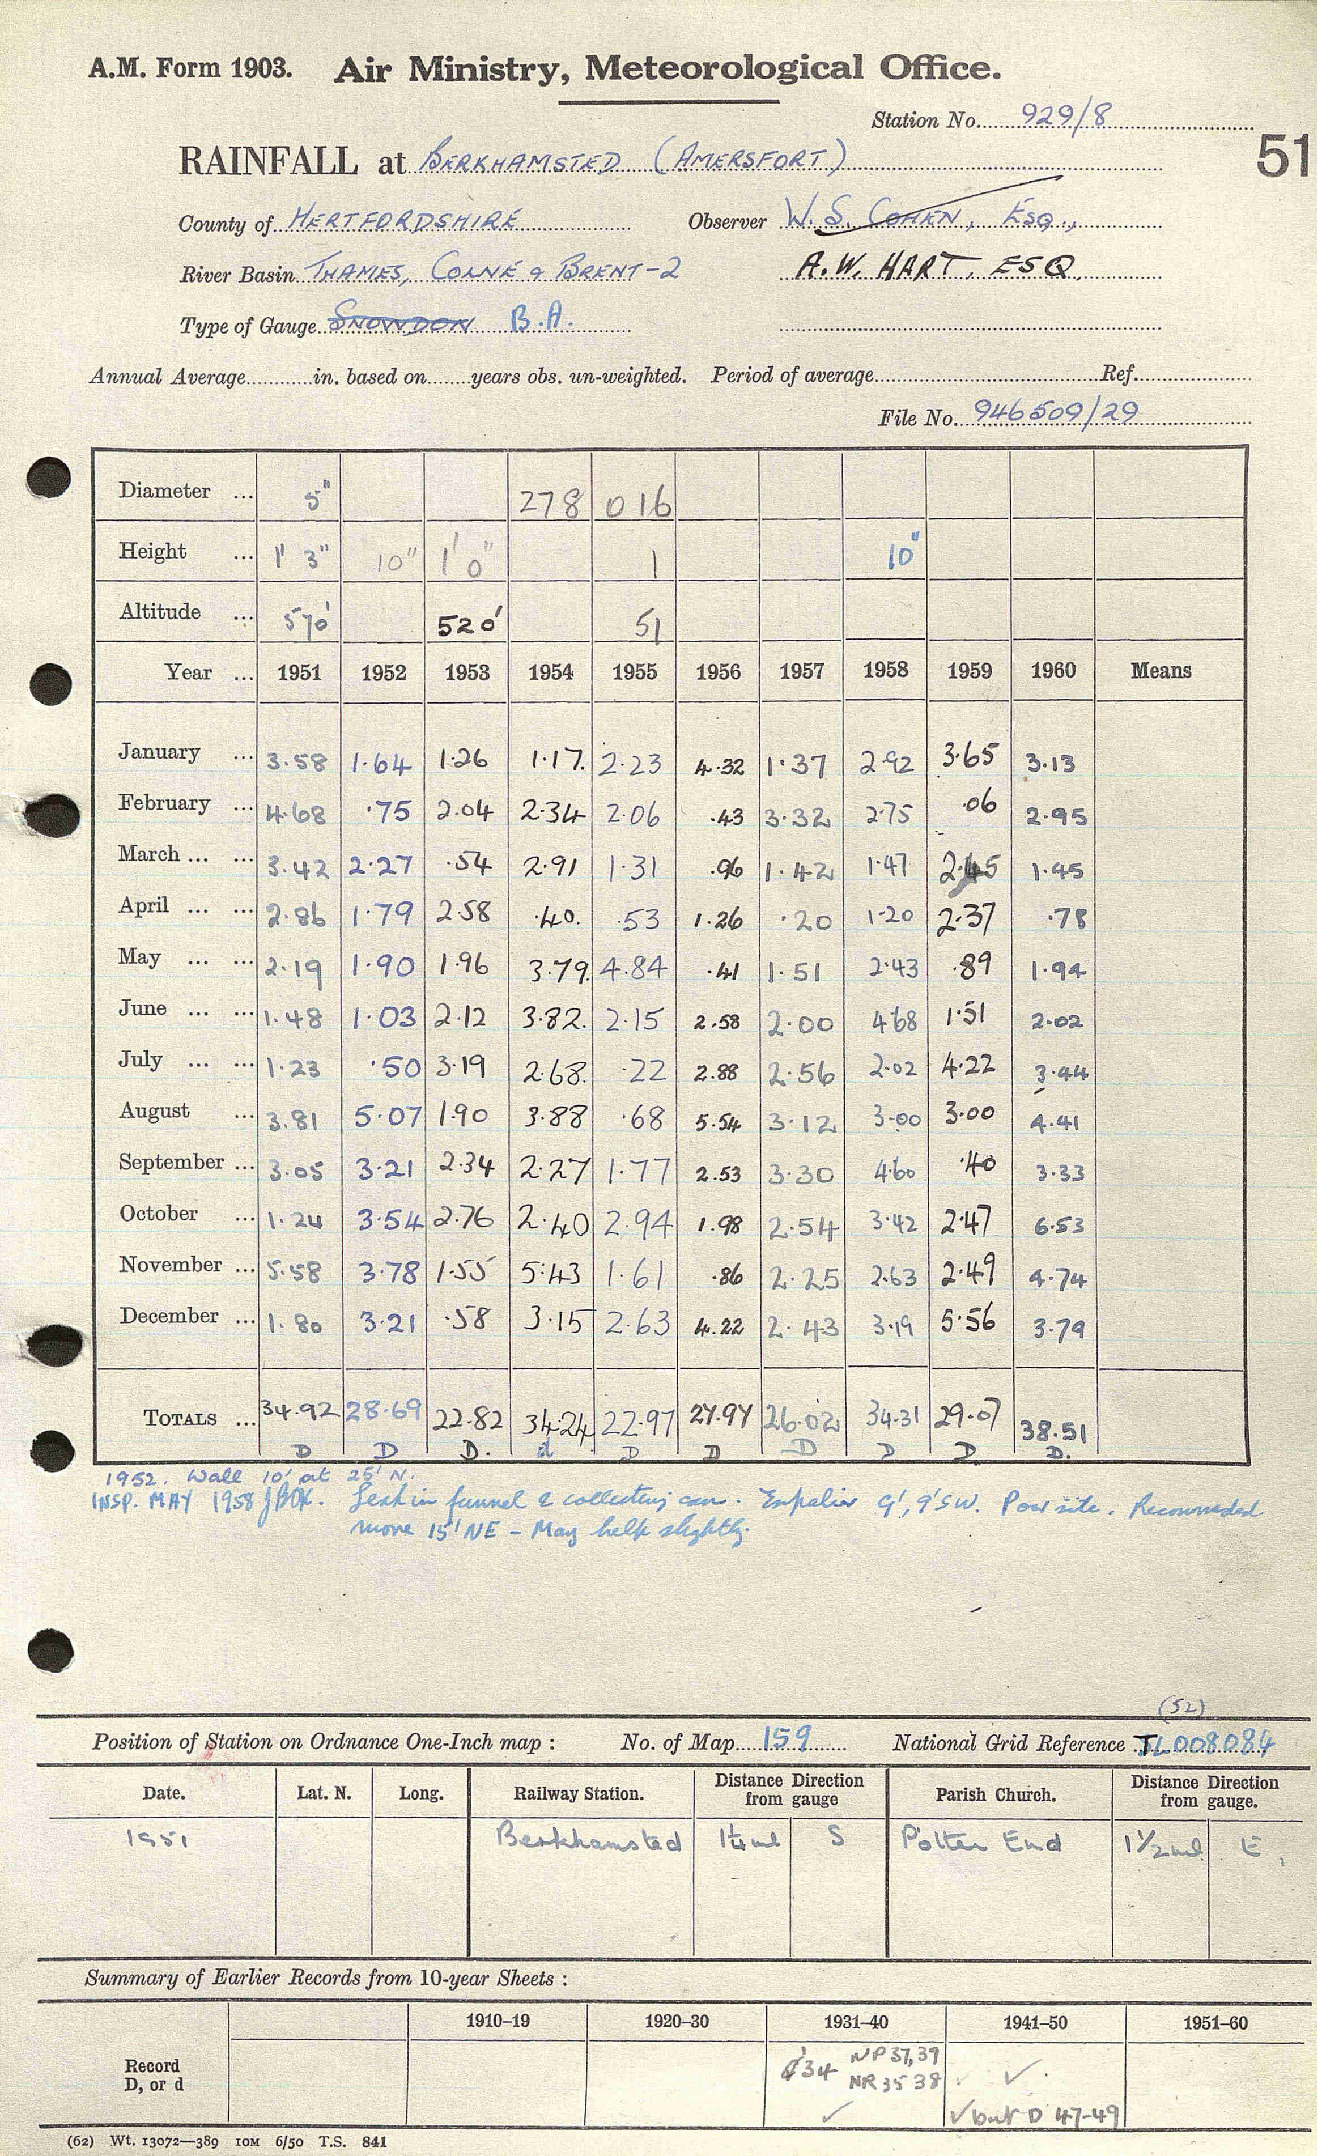 A.M. Form 1903. Air Ministry, Meteorological Office.
Station No. 929/8
51
RAINFALL at BERKHAMSTED (AMERSFORT)
County of HERTFORDSHIRE Observer W. S. COHEN, ESQ.,
River Basin THAMES, COLNE & BRENT-2 A.W. HART, ESQ.
Type of Gauge SNOWDON B.A.
Annual Average in. based on years obs. un-weighted. Period of average Ref.
File No. 946509/29
Diameter ... 5" 278 016
Height ... 1' 3" 10" 1' 0" 1 10"
Altitude ... 570' 520' 51
Year ... 1951 1952 1953 1954 1955 1956 1957 1958 1959 1960 Means
January ... 3.58 1.64 1.26 1.17. 2.23 4.32 1.37 2.92 3.65 3.13
February ... 4.68 .75 2.04 2.34 2.06 .43 3.32 2.75 .06 2.95
March ... ... 3.42 2.27 .54 2.91 1.31 .96 1.42 1.47 2.45 1.45
April ... ... 2.86 1.79 2.58 .40. .53 1.26 .20 1.20 2.37 .78
May ... ... 2.19 1.90 1.96 3.79. 4.84 .41 1.51 2.43 .89 1.94
June ... ... 1.48 1.03 2.12 3.82. 2.15 2.58 2.00 4.68 1.51 2.02
July ... ... 1.23 .50 3.19 2.68. .22 2.88 2.56 2.02 4.22 3.44
August ... 3.81 5.07 1.90 3.88 .68 5.54 3.12 3.00 3.00 4.41
September ... 3.05 3.21 2.34 2.27 1.77 2.53 3.30 4.60 .40 3.33
October ... 1.24 3.54 2.76 2.40 2.94 1.98 2.54 3.42 2.47 6.53
November ... 5.58 3.78 1.55 5.43 1.61 .86 2.25 2.63 2.49 4.74
December ... 1.80 3.21 .58 3.15 2.63 4.22 2.43 3.19 5.56 3.79
TOTALS ... 34.92 28.69 22.82 34.24 22.97 27.97 26.02 34.31 29.07 38.51
D D D. d D D D D D. D.
1952. Wall 10' at 25' N.
INSP. MAY 1958 Leak in funnel & collecting can. Espalier 9', 9' SW. Poor site. Recommended
move 15' NE - May help slightly.
(52)
Position of Station on Ordnance One-Inch map : No. of Map 159 National Grid Reference TL008084
Date. Lat. N. Long. Railway Station. Distance Direction from gauge Parish Church. Distance Direction from gauge.
1951 Berkhamsted 1¼ ml S Potten End 1½ ml E.
Summary of Earlier Records from 10-year Sheets :
1910–19 1920–30 1931–40 1941–50 1951–60
Record D, or d
d'34 NP 37,39 ✓
NR 35 38
✓ ✓ but D 47-49
(62) Wt. 13072—389 10M 6/50 T.S. 841